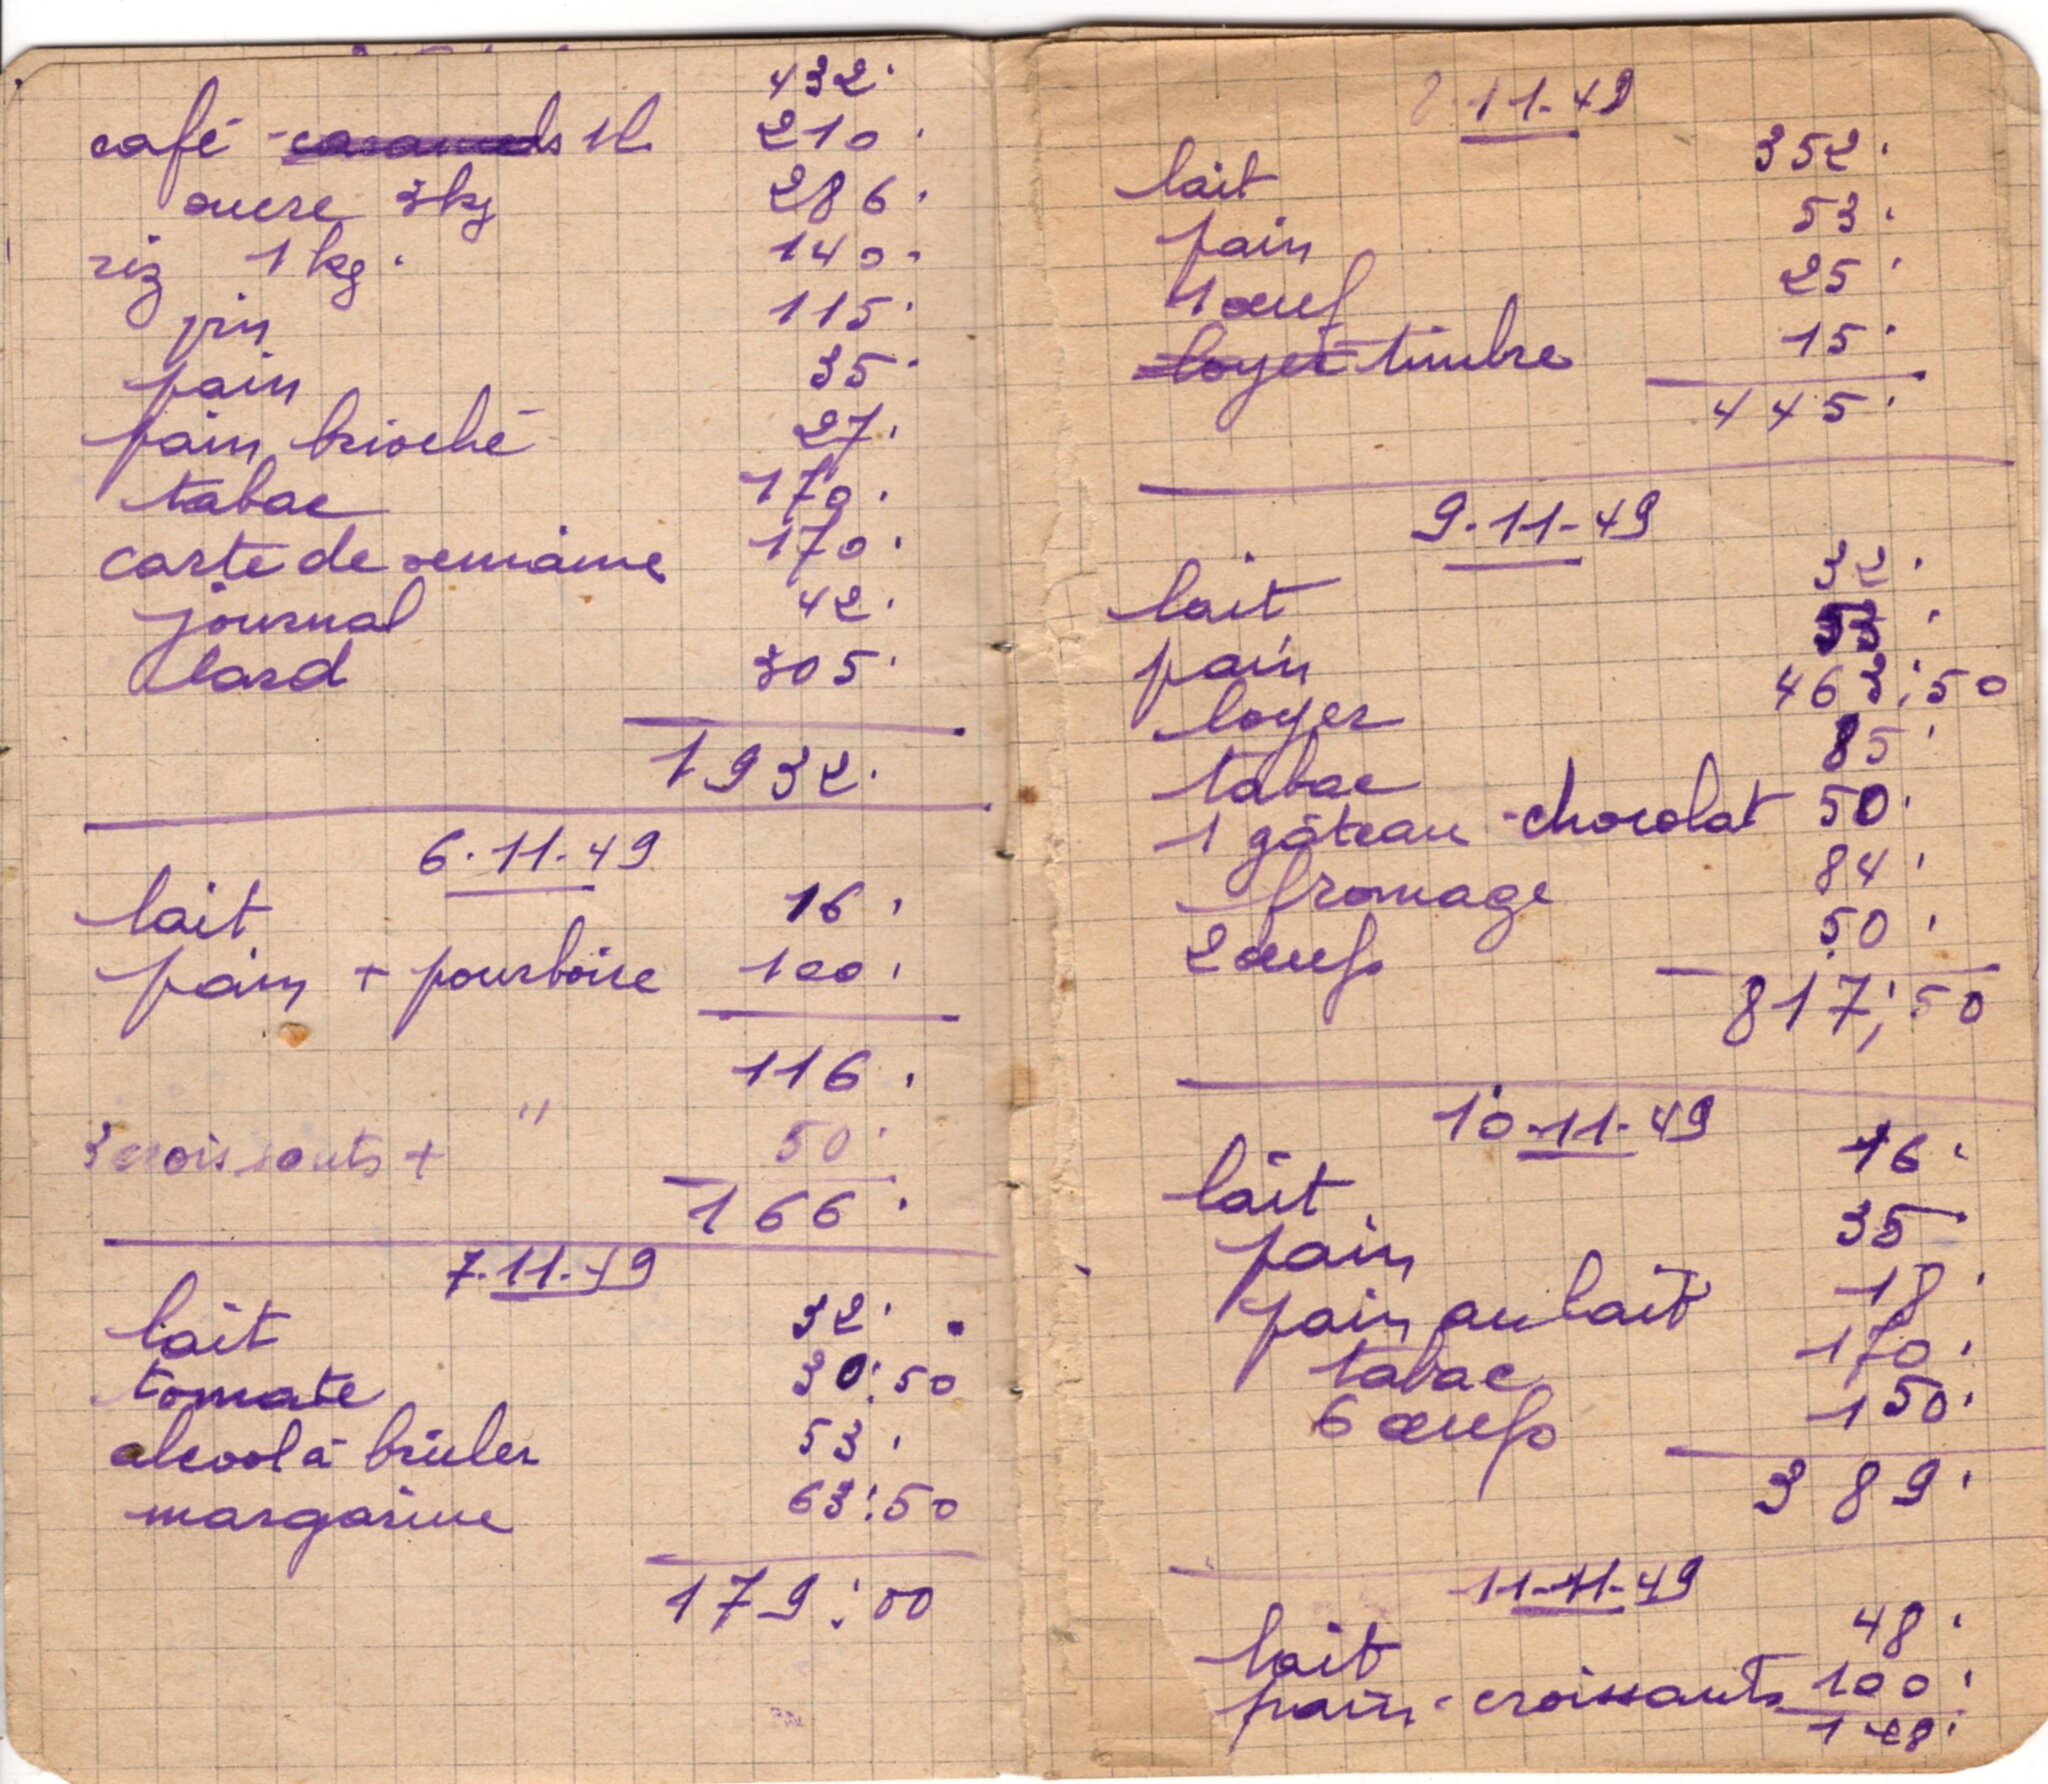 432.
café - caramels 1l 210.
sucre 3kg 286.
riz 1kg. 140.
vin 115.
pain 35.
pain brioché 27.
tabac 170.
carte de semaine 170.
journal 42.
lard 305.
1932.
6.11.49
lait 16.
pain + pourboire 100.
116.
3 croissants + " 50.
166.
7.11.49
lait 32.
tomate 30:50
alcool à brûler 53.
margarine 63:50
179:00
8.11.49
lait 352.
pain 53.
1 œuf 25.
loyer timbre 15.
445.
9.11.49
lait 32.
pain 53.
loyer 463:50
tabac 85.
1 gâteau - chocolat 50.
fromage 84.
2 œufs 50.
817:50
10.11.49
lait 16.
pain 35
pain au lait 18.
tabac 170.
6 œufs 150.
389.
11-11-49
lait 48.
pain - croissants 100.